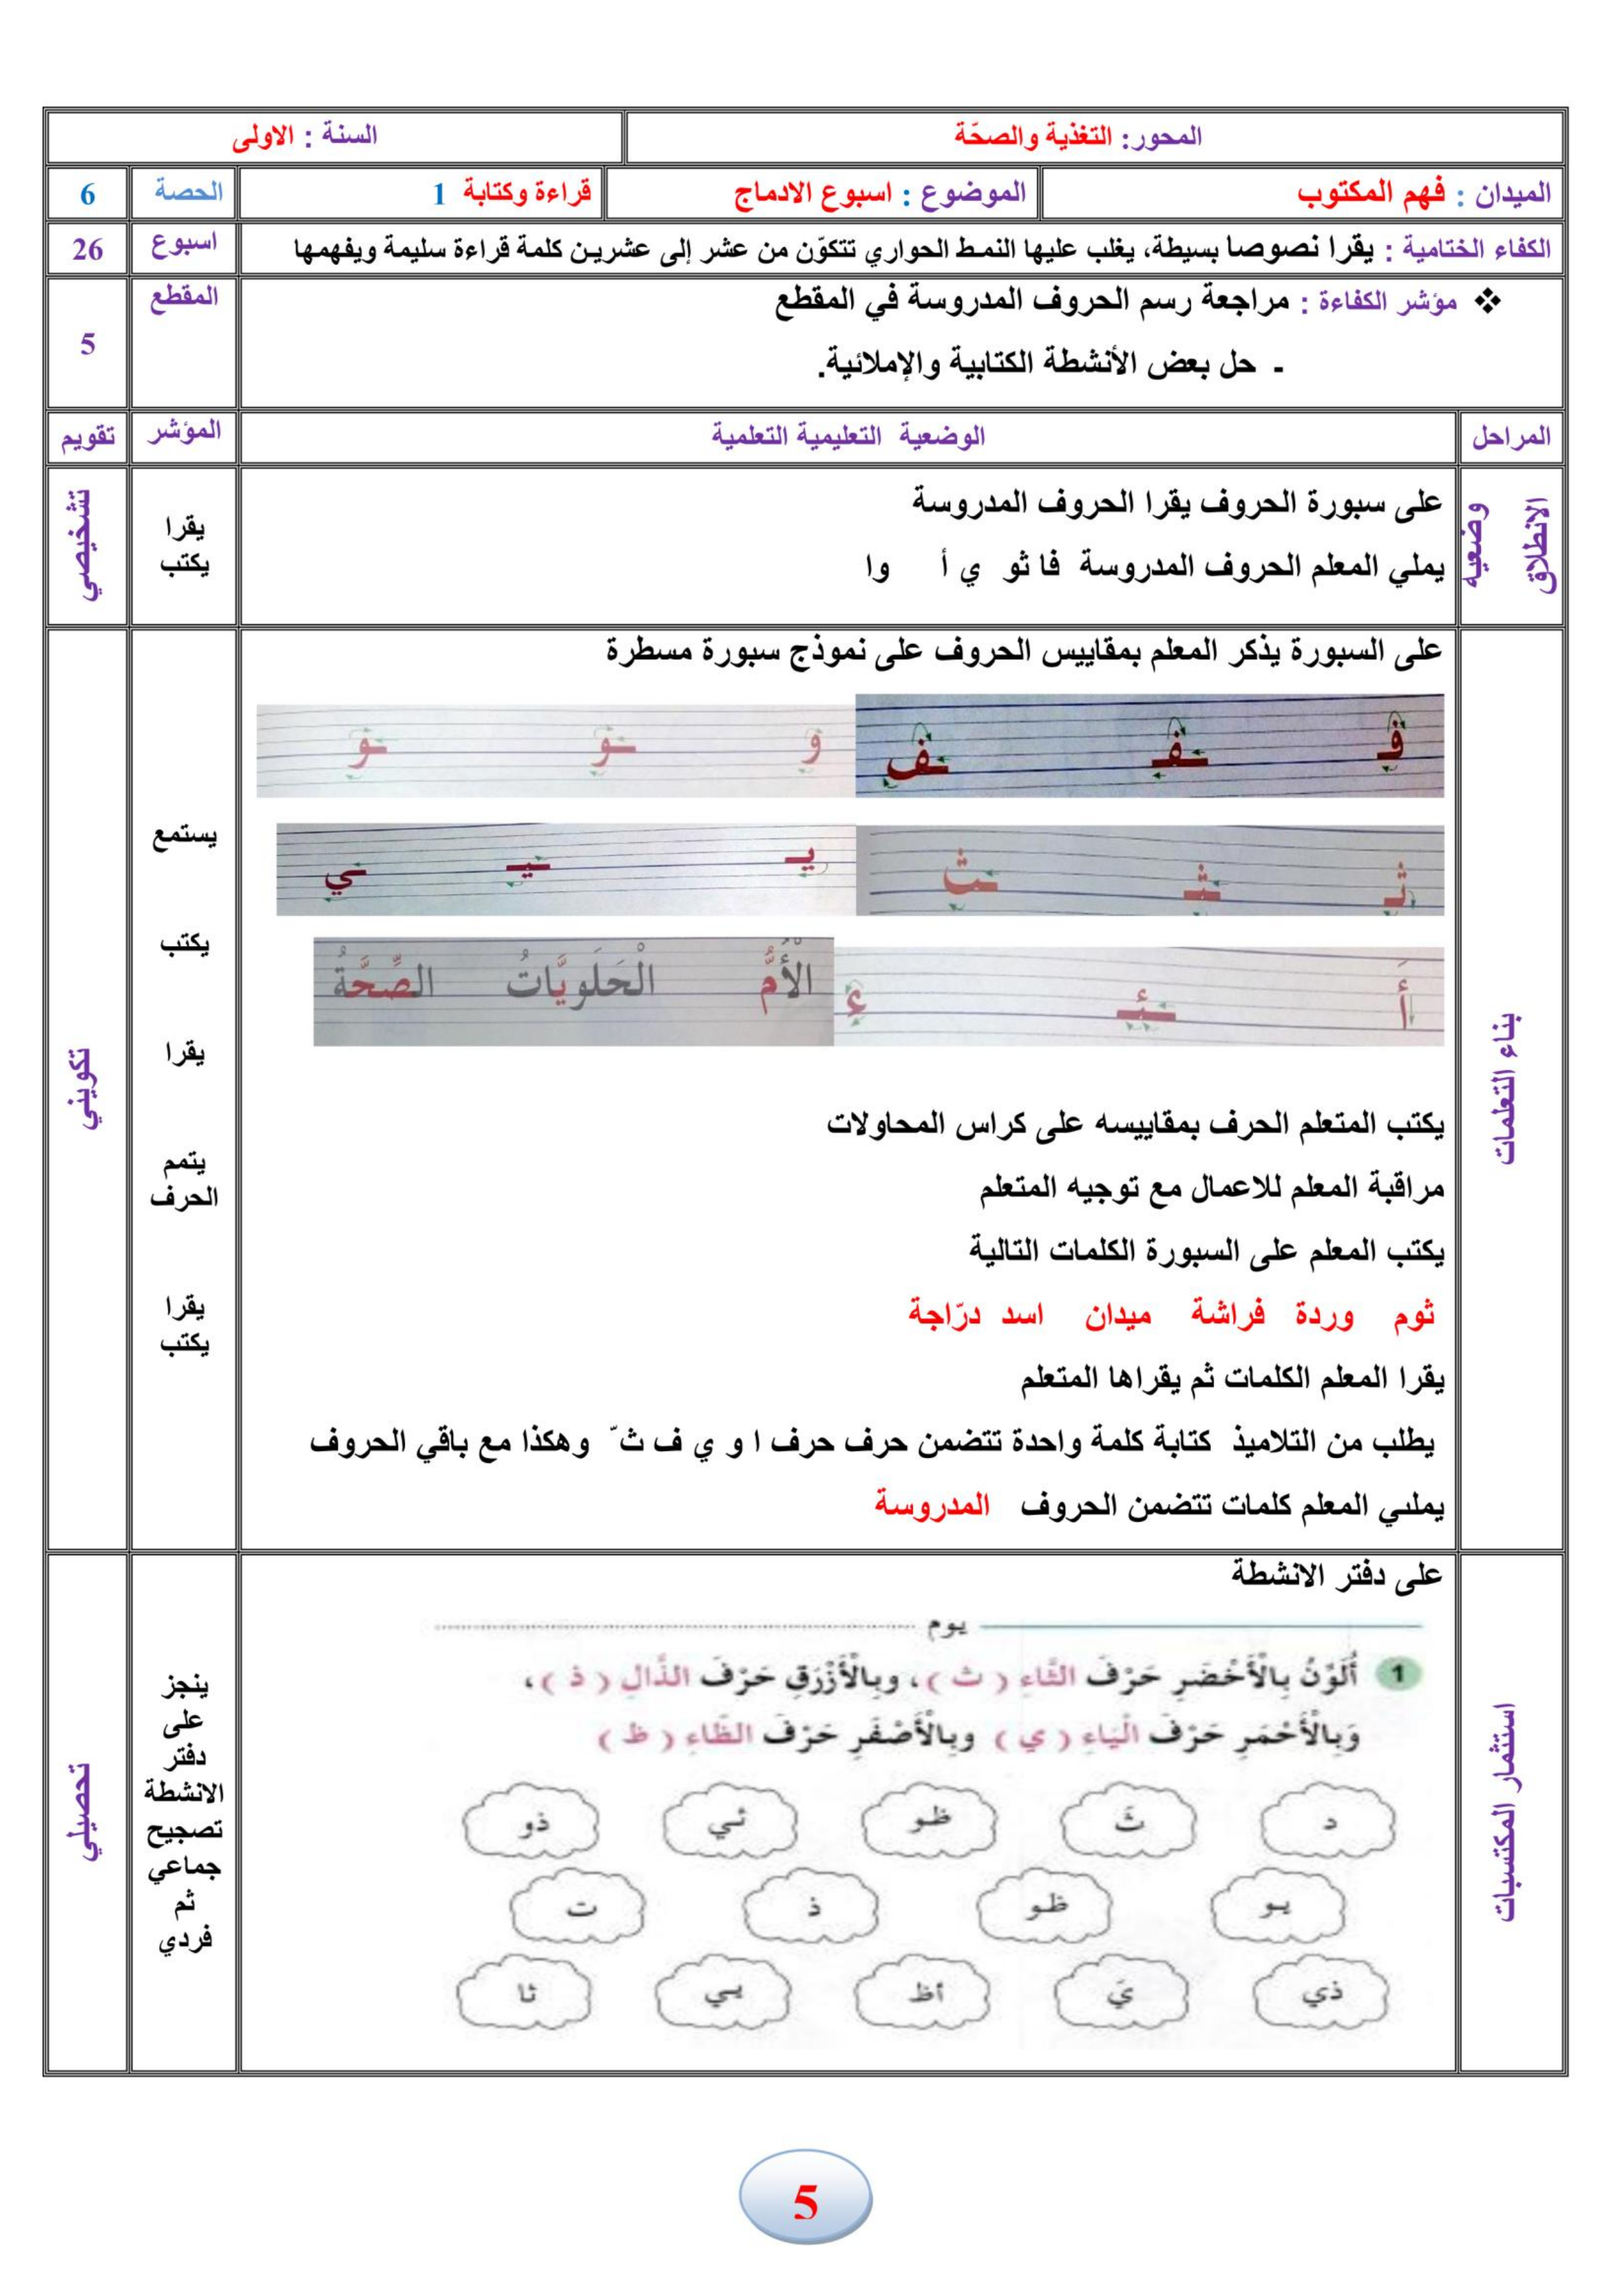 المحور: التغذية والصحّة
السنة : الاولى
الميدان : فهم المكتوب
الموضوع : اسبوع الادماج
قراءة وكتابة 1
الحصة
6
الكفاء الختامية : يقرا نصوصا بسيطة، يغلب عليها النمط الحواري تتكوّن من عشر إلى عشرين كلمة قراءة سليمة ويفهمها
اسبوع
26
❖ مؤشر الكفاءة : مراجعة رسم الحروف المدروسة في المقطع
- حل بعض الأنشطة الكتابية والإملائية.
المقطع
5
المراحل
الوضعية التعليمية التعلمية
المؤشر
تقويم
وضعية
الانطلاق
على سبورة الحروف يقرا الحروف المدروسة
يملي المعلم الحروف المدروسة فا ثو ي أ وا
يقرا
يكتب
تشخيصي
بناء التعلمات
على السبورة يذكر المعلم بمقاييس الحروف على نموذج سبورة مسطرة
فـ ـفـ ـف
و ـو ـو
ثـ ـثـ ـث
يـ ـيـ ـي
أَ ـئـ ءَ
الْأُمُّ الْحَلَوِيَّاتُ الصِّحَّةُ
يكتب المتعلم الحرف بمقاييسه على كراس المحاولات
مراقبة المعلم للاعمال مع توجيه المتعلم
يكتب المعلم على السبورة الكلمات التالية
ثوم وردة فراشة ميدان اسد درّاجة
يقرا المعلم الكلمات ثم يقراها المتعلم
يطلب من التلاميذ كتابة كلمة واحدة تتضمن حرف حرف ا و ي ف ث ّ وهكذا مع باقي الحروف
يملىي المعلم كلمات تتضمن الحروف المدروسة
يستمع
يكتب
يقرا
يتمم
الحرف
يقرا
يكتب
تكويني
استثمار المكتسبات
على دفتر الانشطة
يوم
1 أُلَوِّنُ بِالْأَخْضَرِ حَرْفَ الثَّاءِ ( ث )، وبِالْأَزْرَقِ حَرْفَ الذَّالِ ( ذ )،
وَبِالْأَحْمَرِ حَرْفَ الْيَاءِ ( ي ) وبِالْأَصْفَرِ حَرْفَ الظَّاءِ ( ظ )
د ثَ ظو ثي ذو
يو ظو ذ ت
ذي يَ أظ يي ثا
ينجز
على
دفتر
الانشطة
تصحيح
جماعي
ثم
فردي
تحصيلي
5